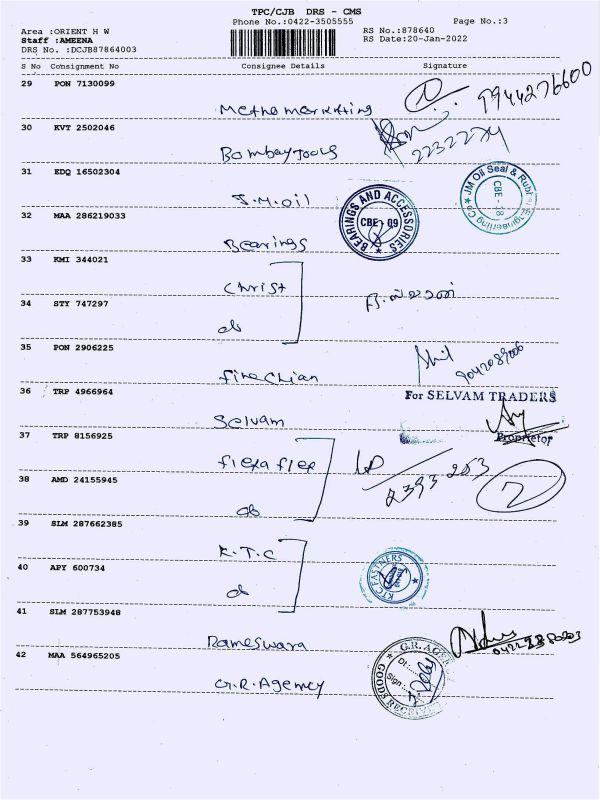 TPC/CJB DRS - CMS
Phone No.:0422-3505555
Page No.:3
Area :ORIENT H W
RS No.:878640
Staff :AMEENA
RS Date:20-Jan-2022
DRS No. :DCJB87864003
S No Consignment No Consignee Details Signature
29 PON 7130099
Metha marketting
9944276600
30 KVT 2502046
Bombay tools
2232274
31 EDQ 16502304
J.M.Oil
JM Oil Seal & Rub
CBE - 18
32 MAA 286219033
Bearings
BEARINGS AND ACCESSORIES
CBE - 09
33 KMI 344021
Christ
34 STY 747297
do
35 PON 2906225
fineChian
36 TRP 4966964
Selvam
For SELVAM TRADERS
Proprietor
37 TRP 8156925
flexaflex
2393 253
2
38 AMD 24155945
do
39 SLM 287662385
K.T.C
40 APY 600734
do
KTC FASTNERS
41 SLM 287753948
Rameswara
42 MAA 564965205
G.R.Agency
G.R. AGE
Dt:
Sign
GOODS RECEIVE